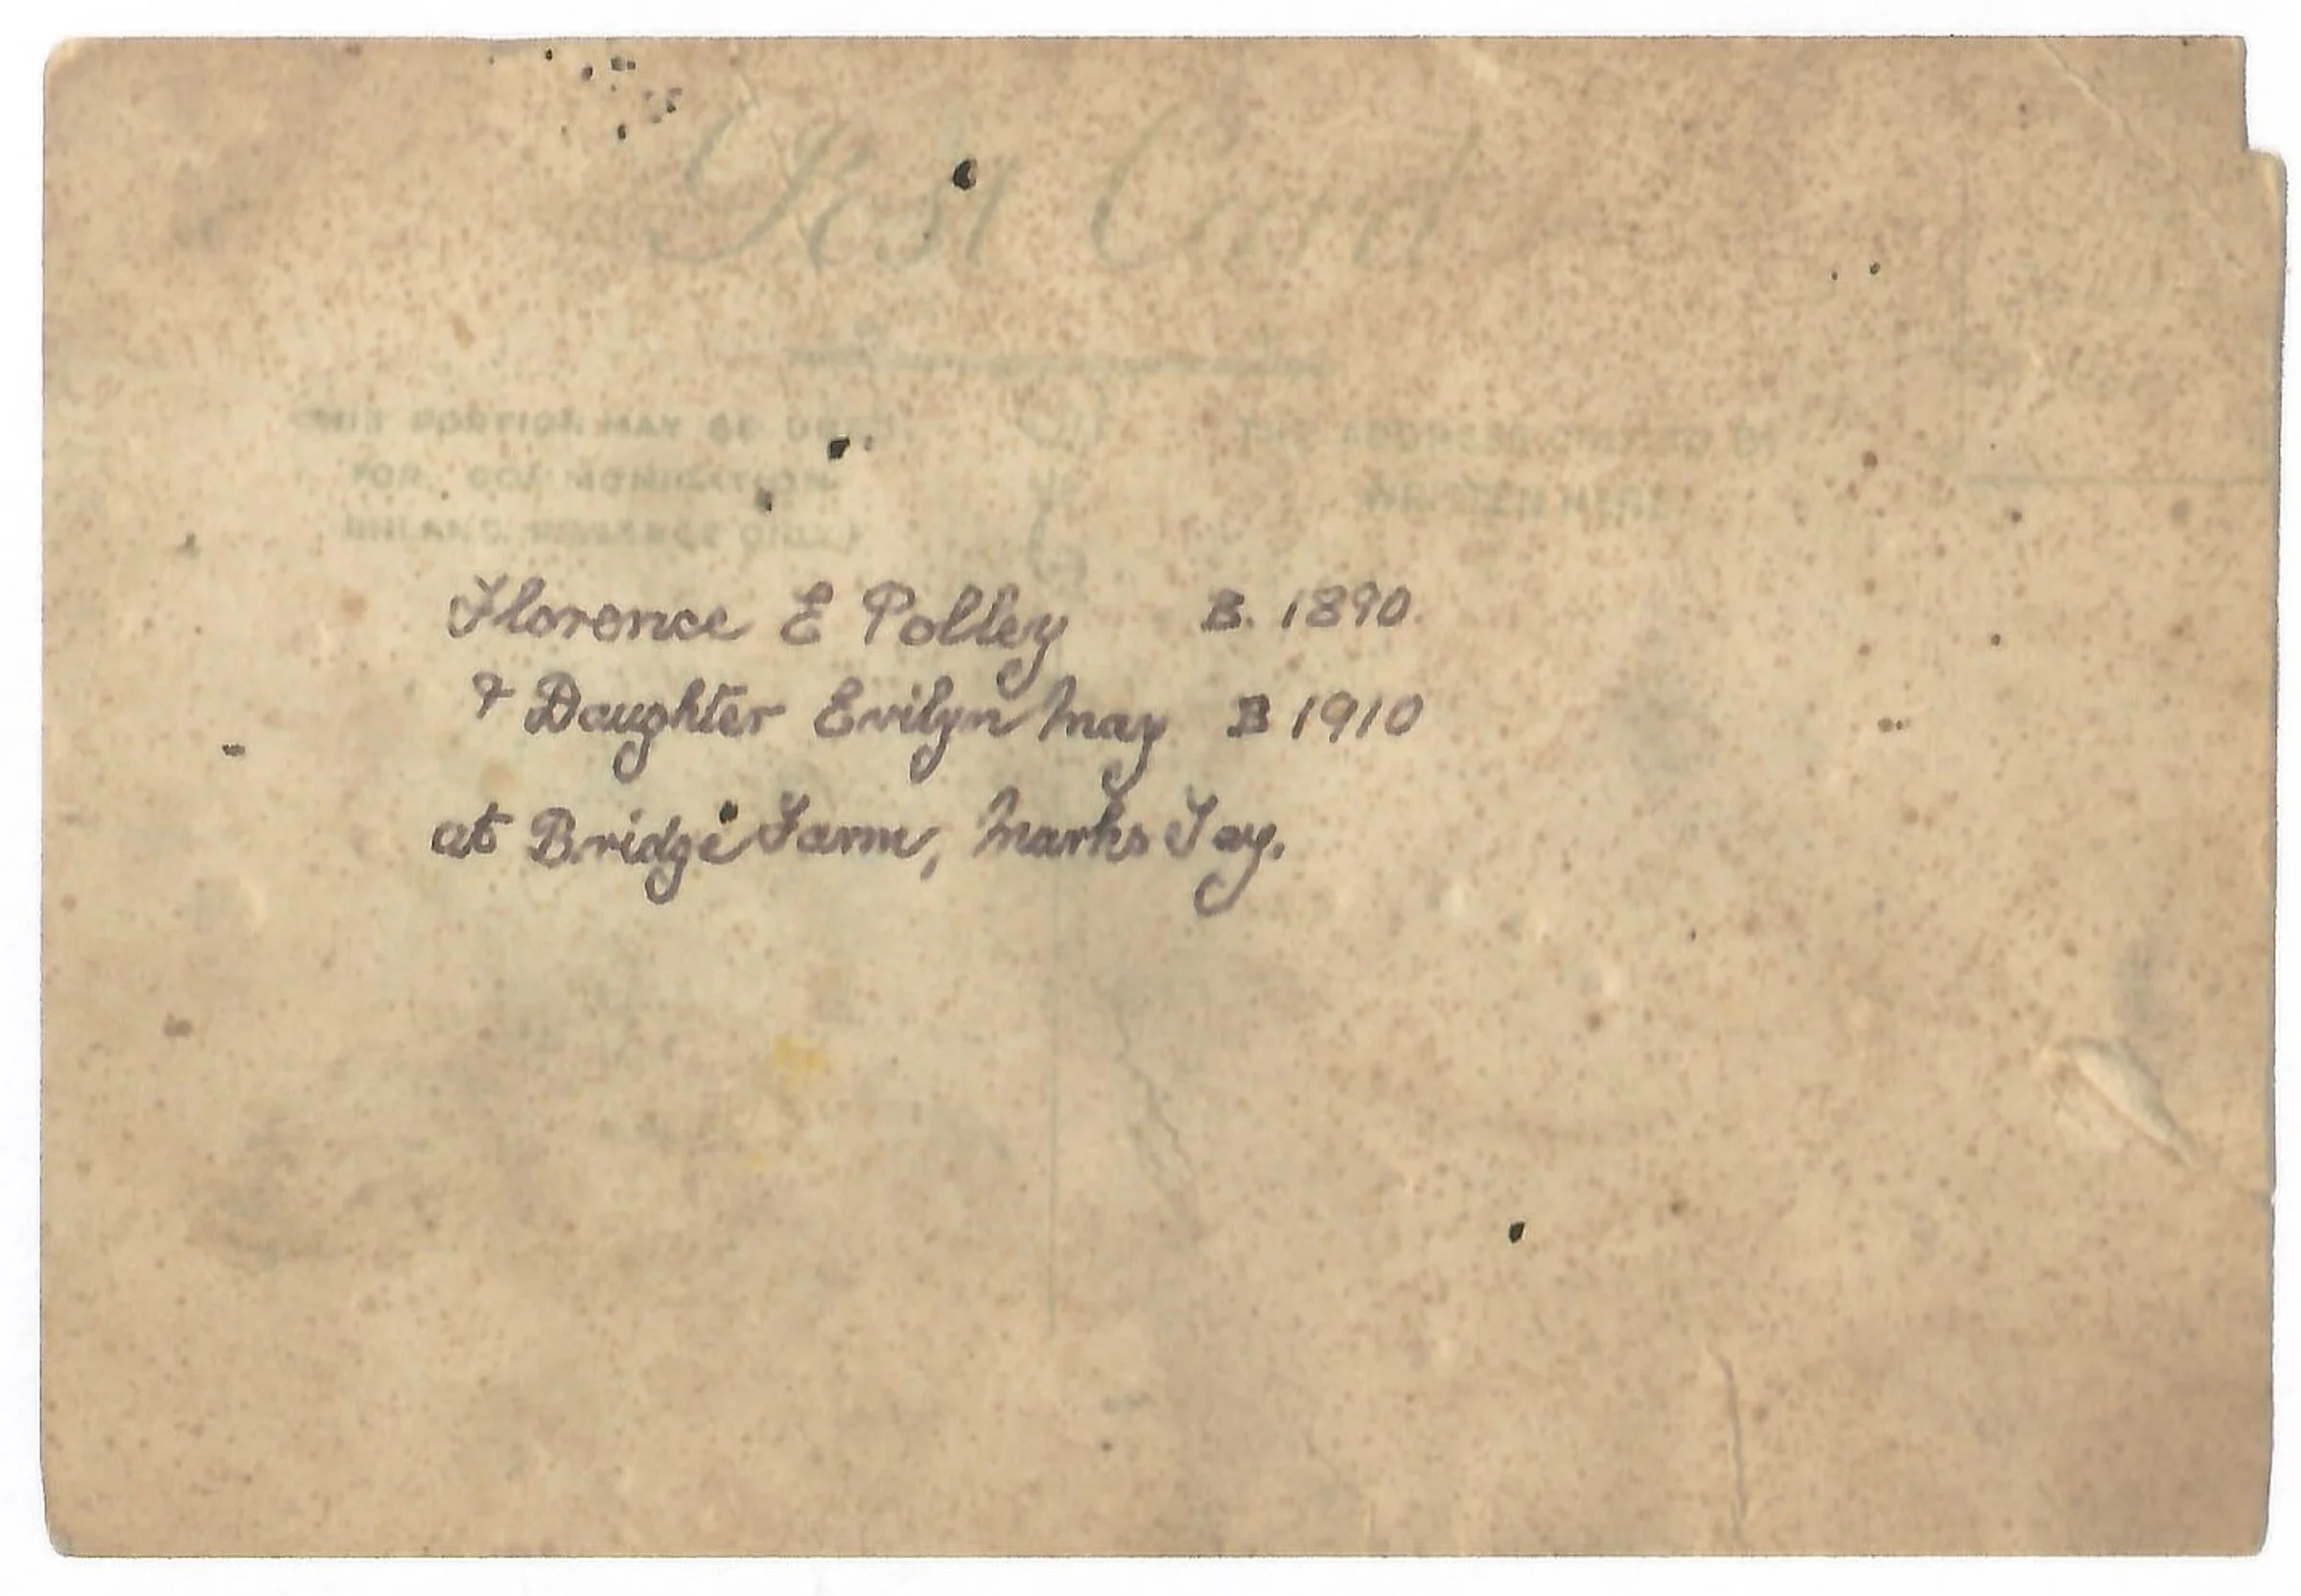 Post Card
THIS PORTION MAY BE USED
FOR COMMUNICATION
INLAND POSTAGE ONLY
THE ADDRESS ONLY TO BE
WRITTEN HERE
Florence E Polley B. 1890.
& Daughter Evilyn May B 1910
at Bridge Farm, Marks Tay.